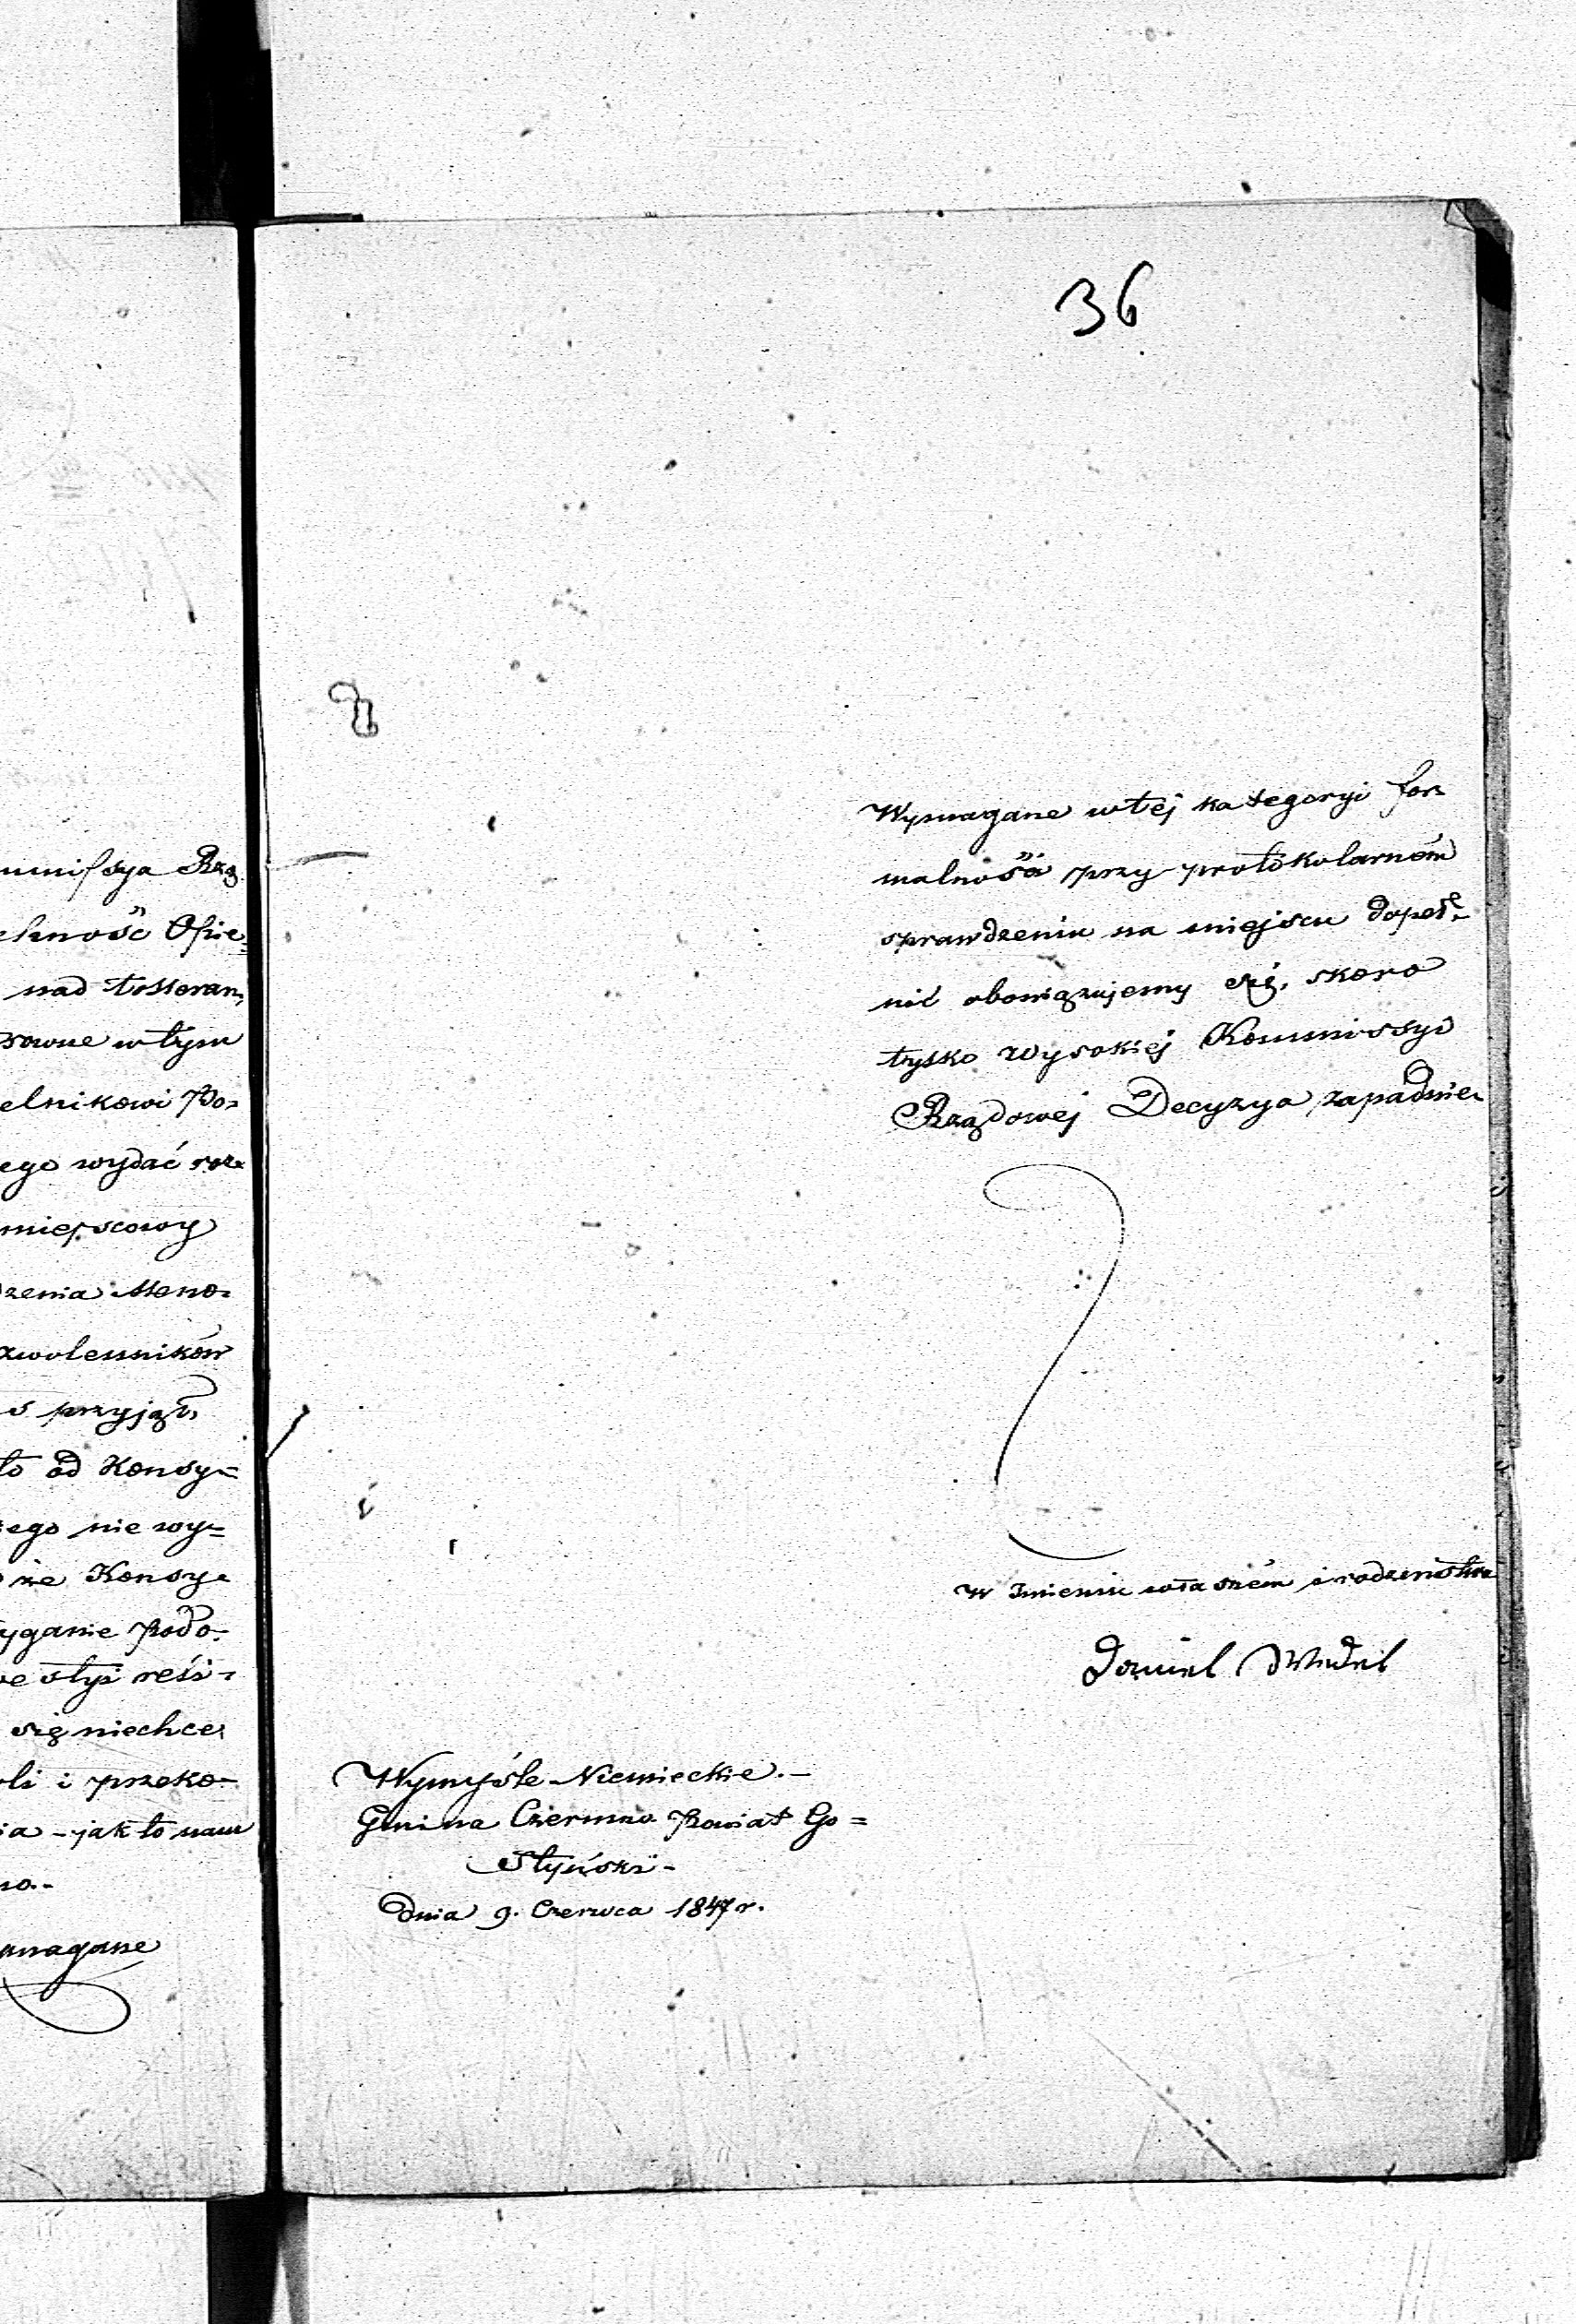 36
mmissya Rzą
chność Opie=
nad toleran,
sowne w tym
elnikowi Po=
ego wydać roz=
miejscowy
zenia Meno=
zwolenników
s przyjął,
to od Konsy=
ego nie wy=
że Konsy=
yganie Podo=
się niechce,
li i przeko=
ia - jak to nam
no.-
magane
Wymagane w tej kategoryi for=
malności przy protokolarném
sprawdzeniu na miejscu dopeł=
nić obowiązujemy się, skoro
tylko Wysokiej Kommissyi
Rządowej Decyzya zapadnie
W Imieniu własném i rodzeństwa
Daniel
Wymyśle Niemieckie.-
Gmina Czermno Powiat Go=
styński -
dnia 9. Czerwca 1847 r.